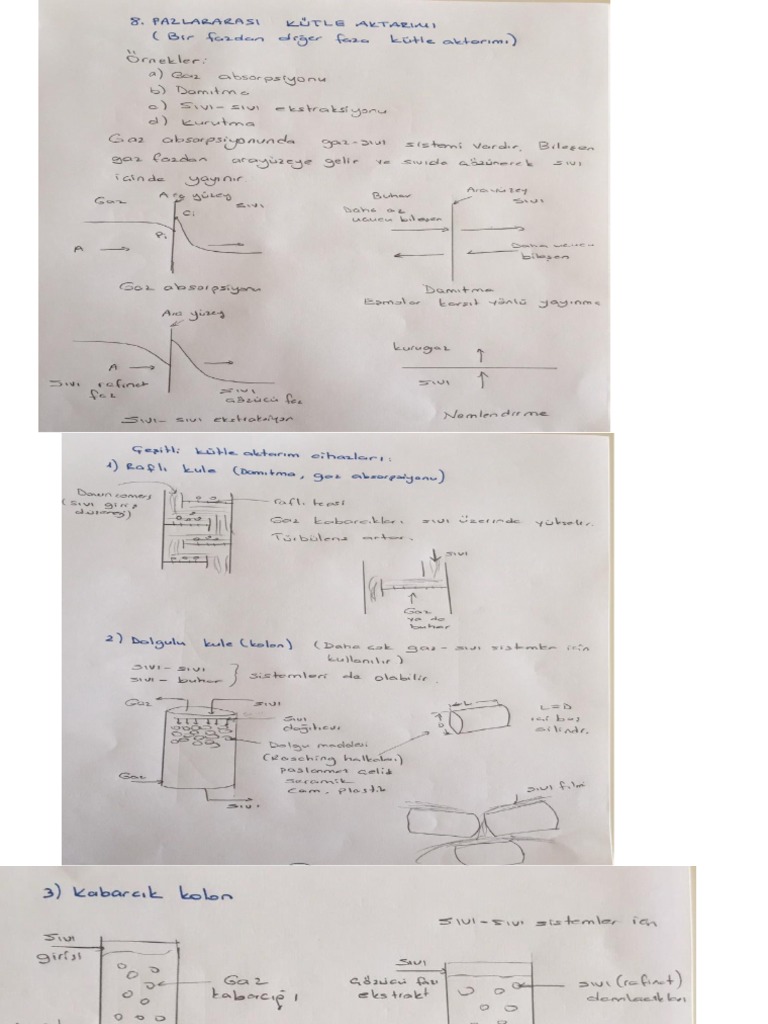 8. FAZLARARASI KÜTLE AKTARIMI
(Bir fazdan diğer faza kütle aktarımı)
Örnekler:
a) Gaz absorpsiyonu
b) Damıtma
c) Sıvı-sıvı ekstraksiyonu
d) Kurutma
Gaz absorpsiyonunda gaz-sıvı sistemi vardır. Bileşen
gaz fazdan arayüzeye gelir ve sıvıda çözünerek sıvı
içinde yayınır.
Gaz
Ara yüzey
Sıvı
Ci
Pi
A
Gaz absorpsiyonu
Buhar
Ara yüzey
Sıvı
Daha az
uçucu bileşen
Daha uçucu
bileşen
Damıtma
Eşmolar karşıt yönlü yayınma
Ara yüzey
A
Sıvı rafinat
faz
Sıvı
çözücü faz
Sıvı-sıvı ekstraksiyon
kurugaz
sıvı
Nemlendirme
Çeşitli kütle aktarım cihazları:
1) Raflı kule (Damıtma, gaz absorpsiyonu)
Downcomers
(sıvı giriş
düzeneği)
raflı tepsi
Gaz kabarcıkları sıvı üzerinde yükselir.
Türbülens artar.
sıvı
Gaz
ya da
buhar
2) Dolgulu kule (kolon) (Daha çok gaz-sıvı sistemler için
kullanılır)
sıvı-sıvı
sıvı-buhar
sistemleri de olabilir.
Gaz
sıvı
Sıvı
dağıtıcısı
Dolgu maddesi
(Rasching halkaları)
paslanmaz çelik
seramik
cam, plastik
Gaz
Sıvı
L
D
L=D
içi boş
silindr.
sıvı filmi
3) Kabarcık kolon
Sıvı
girişi
Gaz
kabarcığı
sıvı-sıvı sistemler için
Sıvı
Çözücü faz
ekstrakt
sıvı (rafinat)
damlacıkları